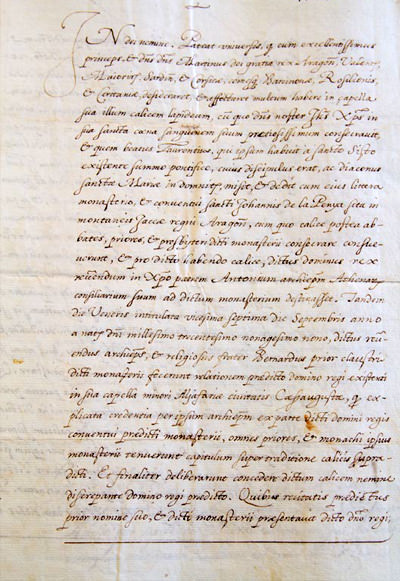 IN dei nomine, Pateat vniversis, q cum excellentissimus
princeps, & dns dns Martinus dei gratia rex Aragon, Valen,
Maioriz, Sardin, & Corsicæ, comesq Barcinonæ, Rosilionis,
& Ceritaniæ, desideraret, & affectaret multum habere in capella
sua illum calicem lapideum, cū quo dns noster Jhs Xps in
sua sancta cœna sanguinem suum preciosissimum consecravit,
& quem beatus Laurentius, qui ipsum habuit à sancto Sixto
existente summo pontifice, cuius discipulus erat, ac diaconus
sanctæ Mariæ in domnica, misit, & dedit cum eius littera
monasterio, & conventui sancti Johannis de la Penya sita in
montaneis Jaccæ regni Aragon, cum quo calice postea ab-
bates, priores, & presbyteri dicti monasterii consecrare consue-
verunt, & pro dicto habendo calice, dictus dominus rex
reverendum in Xpo patrem Antonium archiepm Athenar
consiliarium suum ad dictum monasterium destinasset. Tandem
die Veneris intitulata vicesima septima die Septembris anno
a natj dni millesimo trecentesimo nonagesimo nono, dictus reu-
endus archieps, & religiosus frater Bernardus prior claustri
dicti monasterii fecerunt relationem predicto domino regi existenti
in sua capella minori Aljafariæ civitatis Cæsaraugustæ, q ex-
plicata credentia per ipsum archiepm ex parte dicti domini regis
conventui predicti monasterii, omnes priores, & monachi ipsius
monasterii tenuerunt capitulum super traditione calicis supra-
dicti. Et finaliter deliberarunt concedere dictum calicem nemine
discrepante domino regi predicto. Quibus recitatis predictus
prior nomine suo, & dicti monasterii presentavit dicto dno regi,